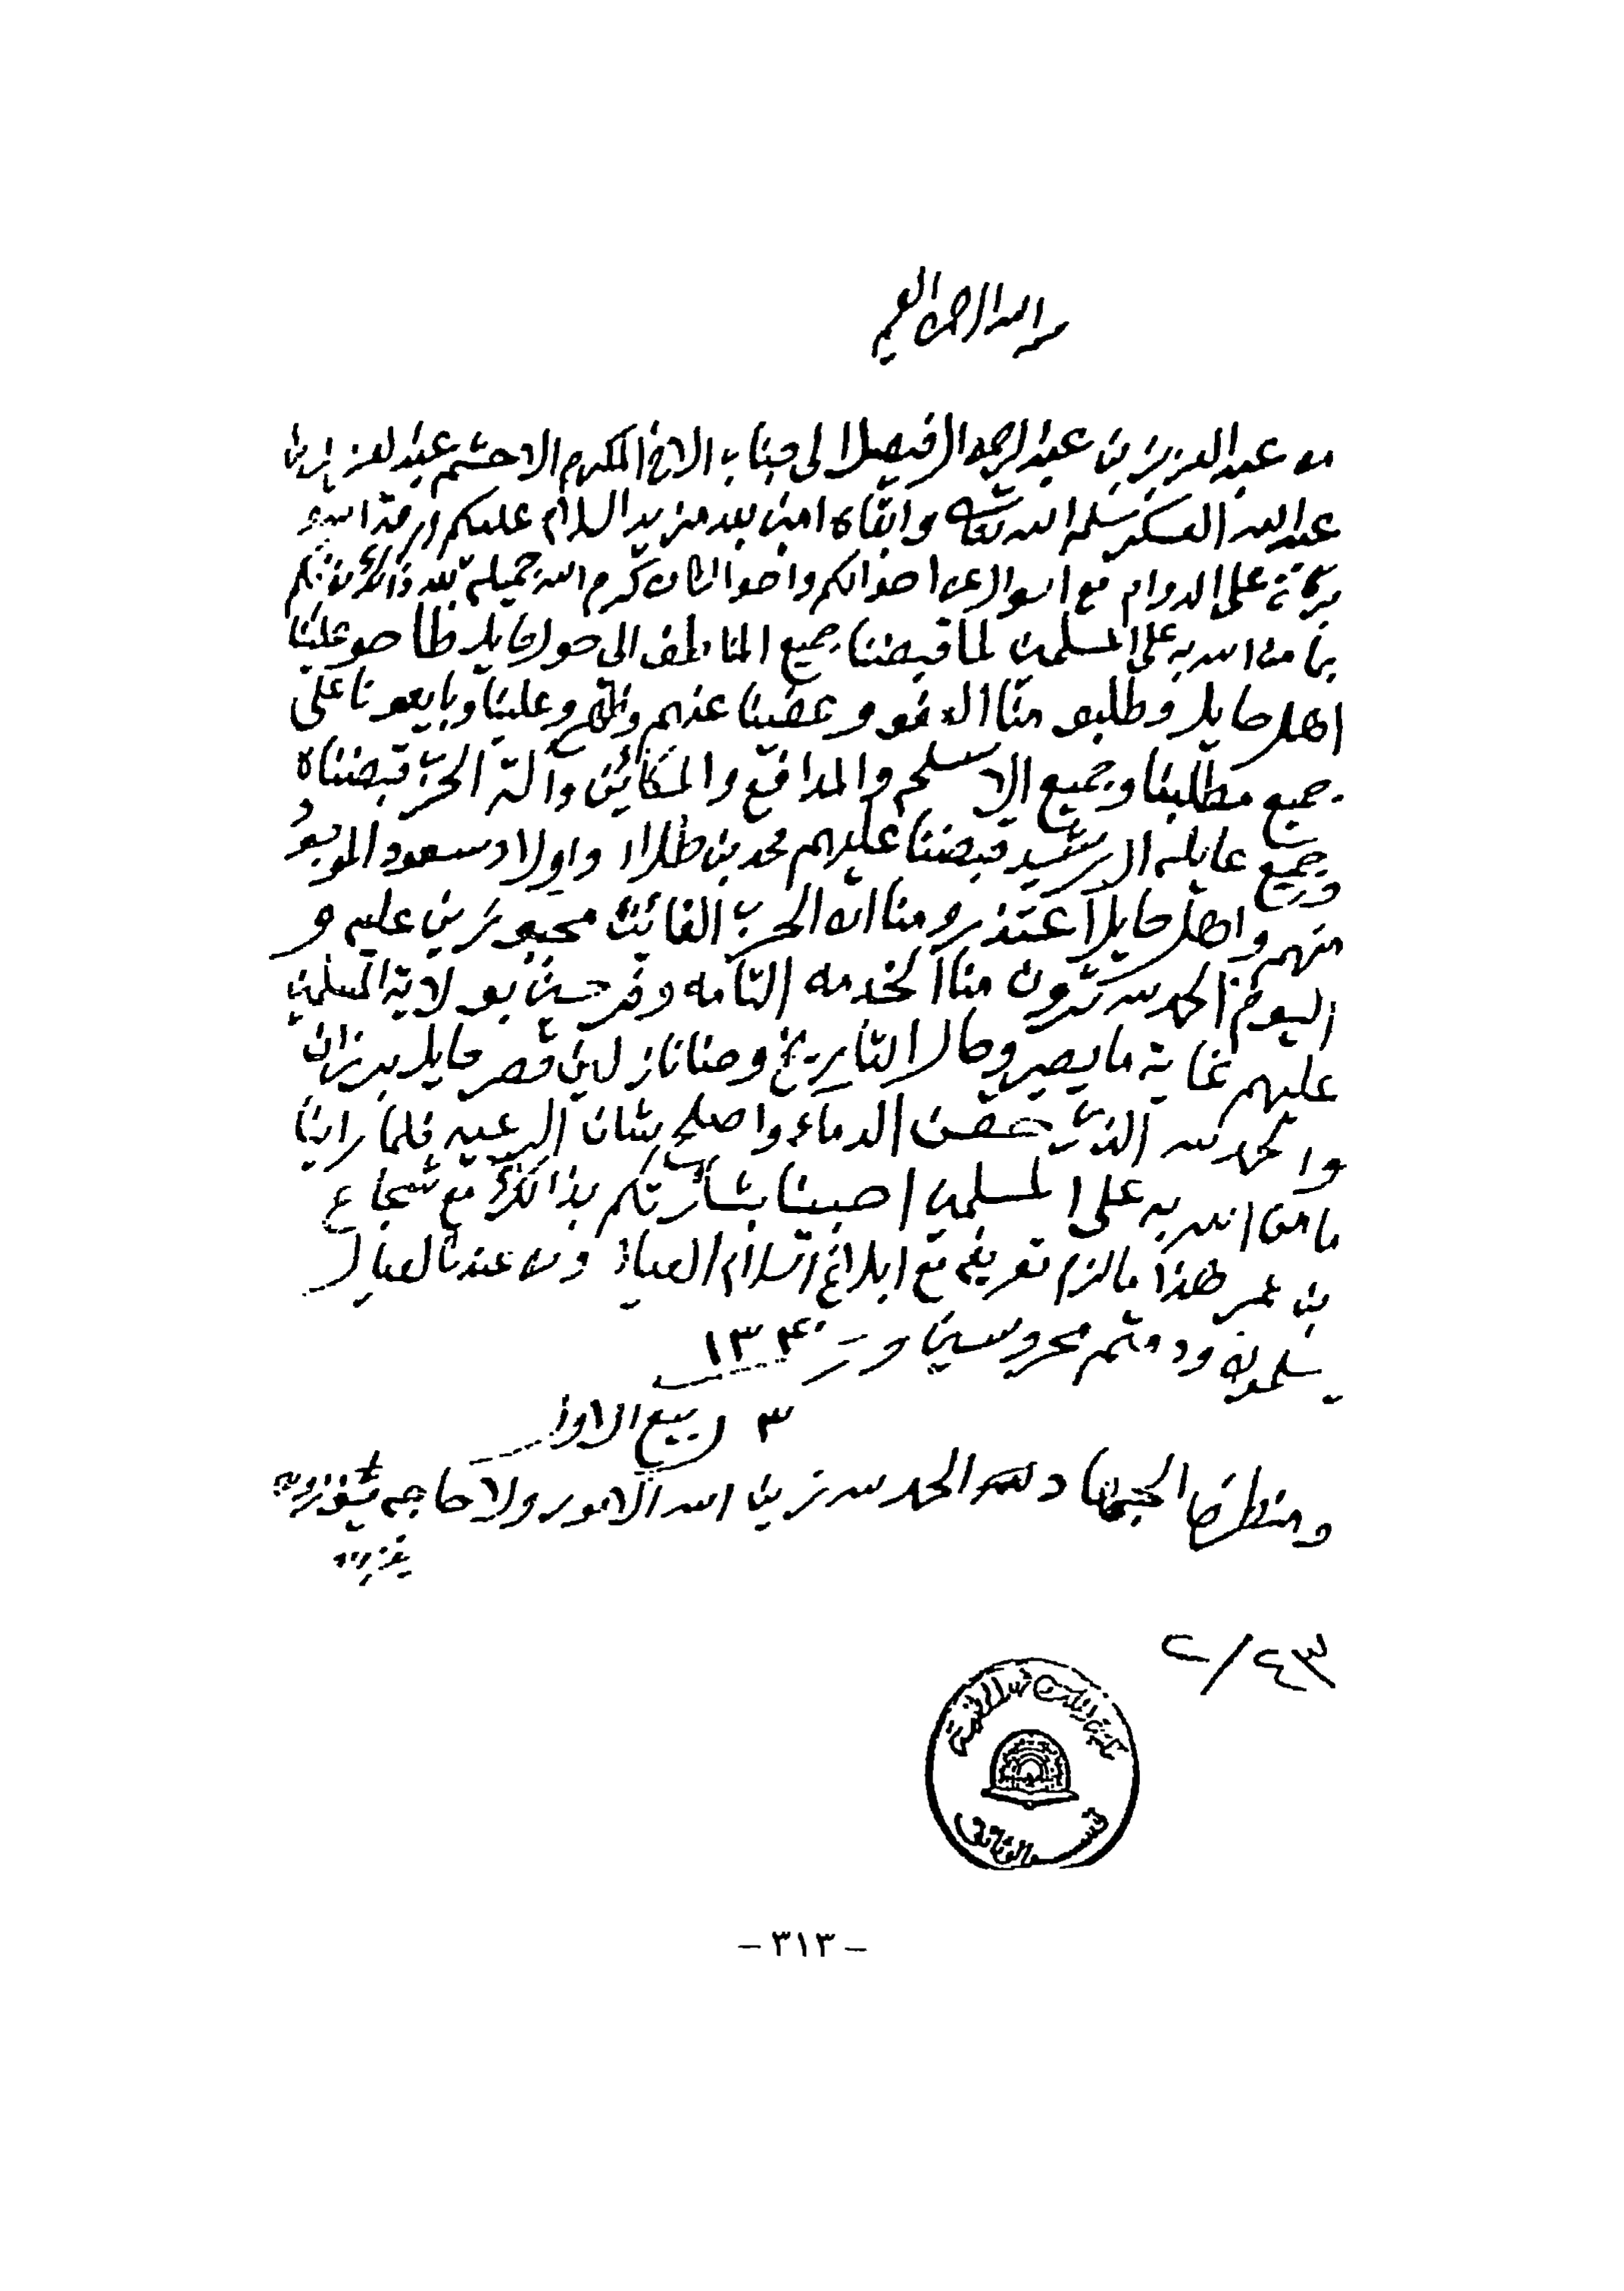 بسم الله الرحمن الرحيم
من عبد العزيز بن عبد الرحمن الفيصل الى جناب الاخ المكرم الاحشم عبد العزيز بن
عبد الله العسكر سلمه الله تعالى وابقاه امين بعد مزيد السلام عليكم ورحمة الله و
بركاته على الدوام مع السوال عن احوالكم واحوالنا من كرم الله جميله بعد ذالك
بما من الله به على المسلمين لما قبضنا جميع المناطف الى حول حايل طاحو علينا
اهل حايل وطلبو منا العفو وعفينا عنهم وعلينا وبايعونا على
جميع مطلبنا وجميع الاسلحه والمدافع والمكائن وآلة الحرب قبضناه
وجميع عايلة الرشيد قبضنا عليهم محمد بن طلال واولاد سعود الموجود
منهم واهل حايل اعتذرو منا انه الحرب الفائت مجبورين عليه و
اليوم الحمد لله ترون منا الخدمه التامه وفرحين بولاية المسلمين
عليهم غاية ما يصير وحال التاريخ وحنا نازلين قصر حايل برزان
والحمد لله الذي حقن الدماء واصلح شان الرعيه فلما راينا
ما من الله به على المسلمين احبينا بشارتكم بذالك مع شجاع
بن عمر هذا مالزم تعريفه مع ابلاغ السلام العيال ومن عندنا العيال
يسلمون ودمتم محروسين ١٣٤٠
٣ ربيع الاول
الجهاد الحمد لله زين الله الامور ولا حاجه
٢/٤٣
قسم الوثائق
- ٣١٣ -